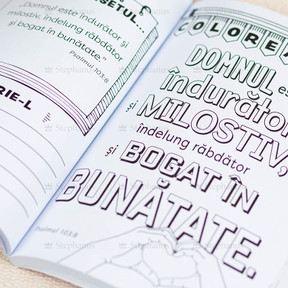 SETUL...
„Domnul este îndurător și
milostiv, îndelung răbdător
și bogat în bunătate."
Psalmul 103:8
RIE-L
COLOREA
DOMNUL es
îndurător
și MILOSTIV,
îndelung răbdător
și BOGAT ÎN
BUNĂTATE.
Psalmul 103:8
Stephanus